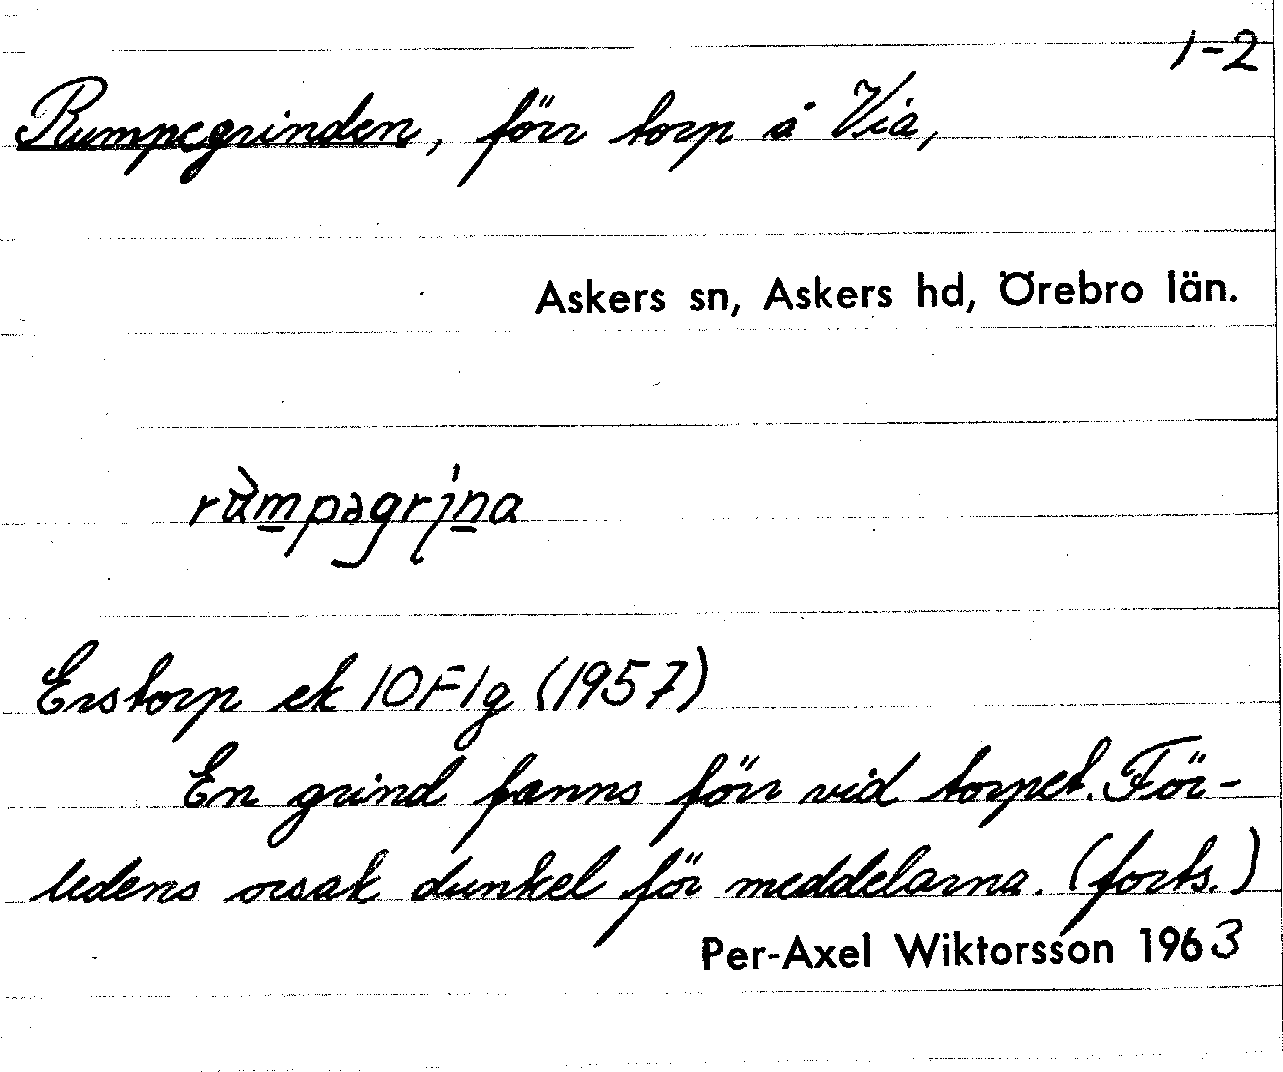 1-2
Rumpegrinden, förr torp å Via,
Askers sn, Askers hd, Örebro län.
Erstorp ek 10F1g (1957)
En grind fanns förr vid torpet. För-
ledens orsak dunkel för meddelarna. (forts.)
Per-Axel Wiktorsson 1963